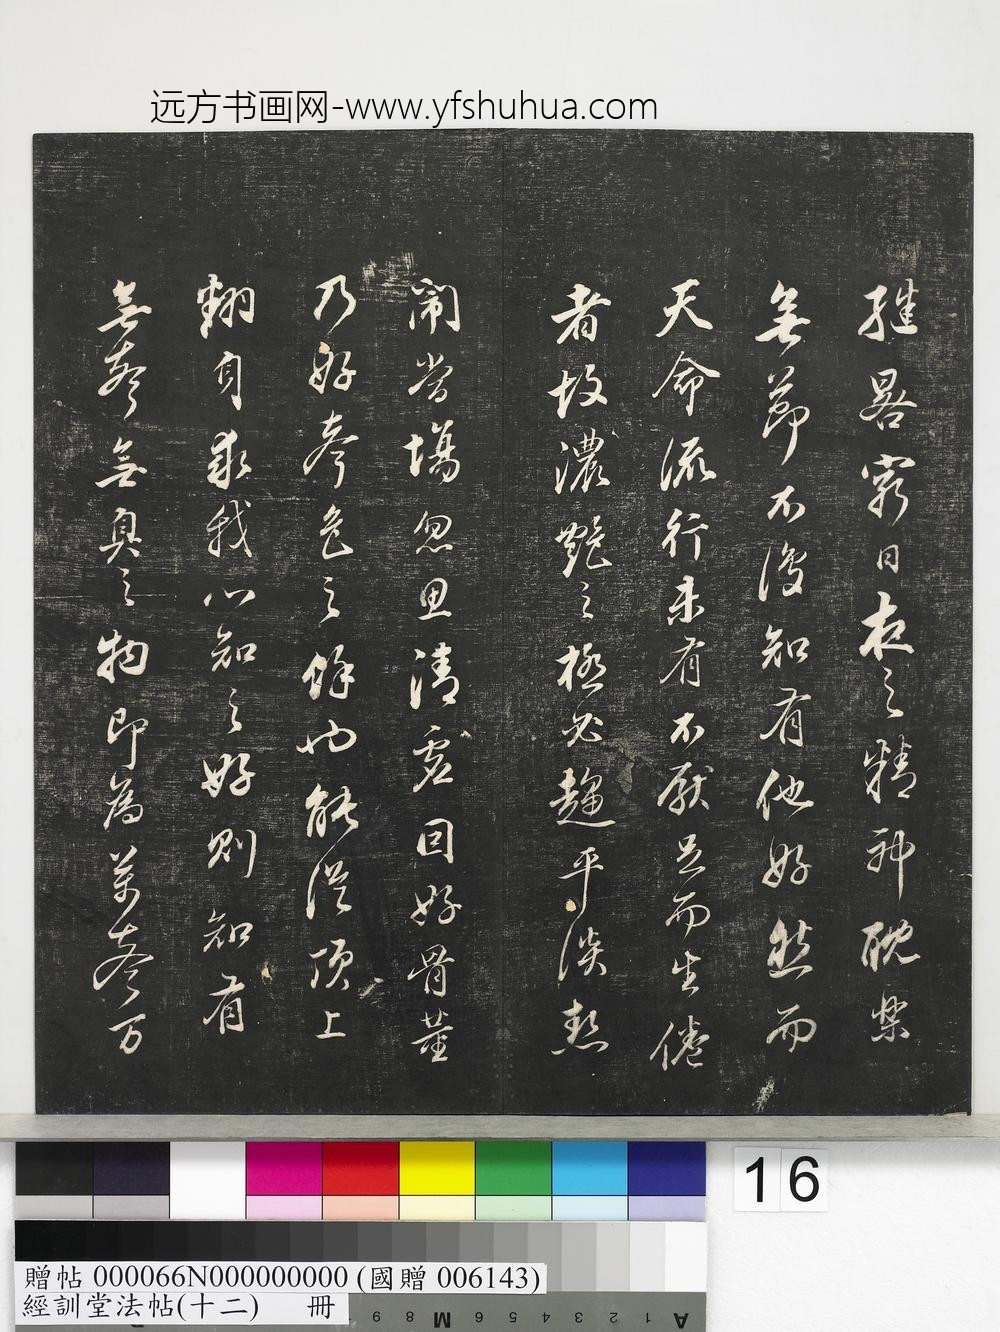 远方书画网-www.yfshuhua.com
繼晷窮日夜之精神耽樂
無節不復知有他好然而
天命流行未有不厭足而生倦
者故濃艷之極必趨平淡熱
鬧當場忽思清虛因好骨董
乃好聲色之餘也能從頂上
翻身求我心知之好則知有
無聲無臭之物即為萬聲万
16
贈帖 000066N000000000 (國贈 006143)
經訓堂法帖(十二) 冊